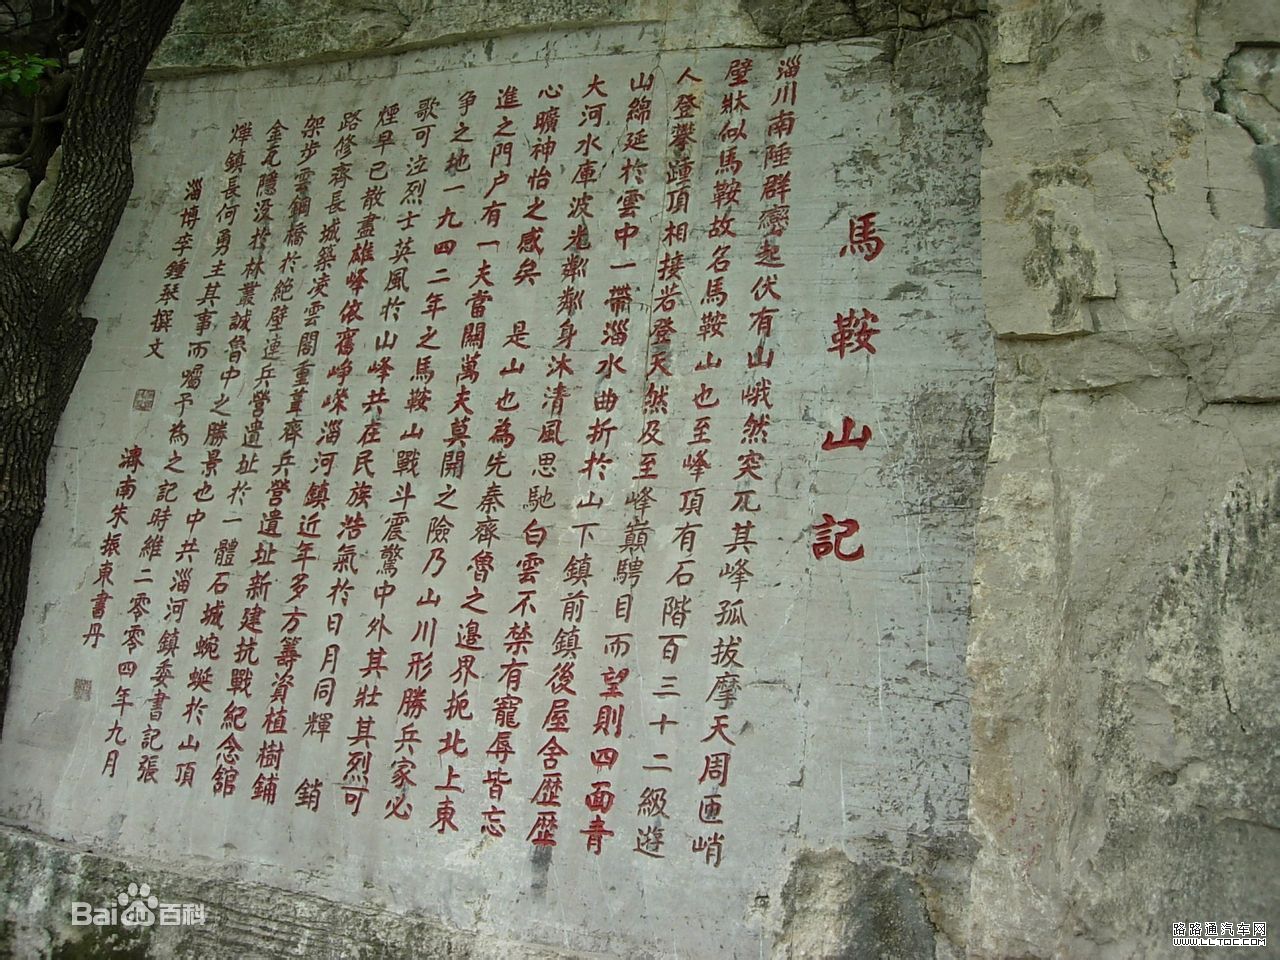 馬鞍山記
淄川南陲群巒起伏有山峨然突兀其峰孤拔摩天周匝峭
壁牀似馬鞍故名馬鞍山也至峰頂有石階百三十二級遊
人登攀踵頂相接若登天然及至峰巔騁目而望則四面青
山綿延於雲中一帶淄水曲折於山下鎮前鎮後屋舍歷歷
大河水庫波光粼粼身沐清風思馳白雲不禁有寵辱皆忘
心曠神怡之感矣 是山也為先秦齊魯之邊界扼北上東
進之門户有一夫當關萬夫莫開之險乃山川形勝兵家必
爭之地一九四二年之馬鞍山戰斗震驚中外其壯其烈可
歌可泣烈士英風於山峰共在民族浩氣於日月同輝 銷
煙早已散盡雄峰依舊崢嶸淄河鎮近年多方籌資植樹鋪
路修齊長城築凌雲閣重葺齊兵營遺址新建抗戰紀念舘
架步雲鋼橋於絶壁連兵營遺址於一體石城蜿蜒於山頂
金瓦隱没於林叢誠魯中之勝景也中共淄河鎮委書記張
燁鎮長何勇主其事而囑予為之記時維二零零四年九月
淄博李鍾琴撰文
濟南朱振東書丹
Bai百科
路路通汽车网
WWW.LLTQC.COM